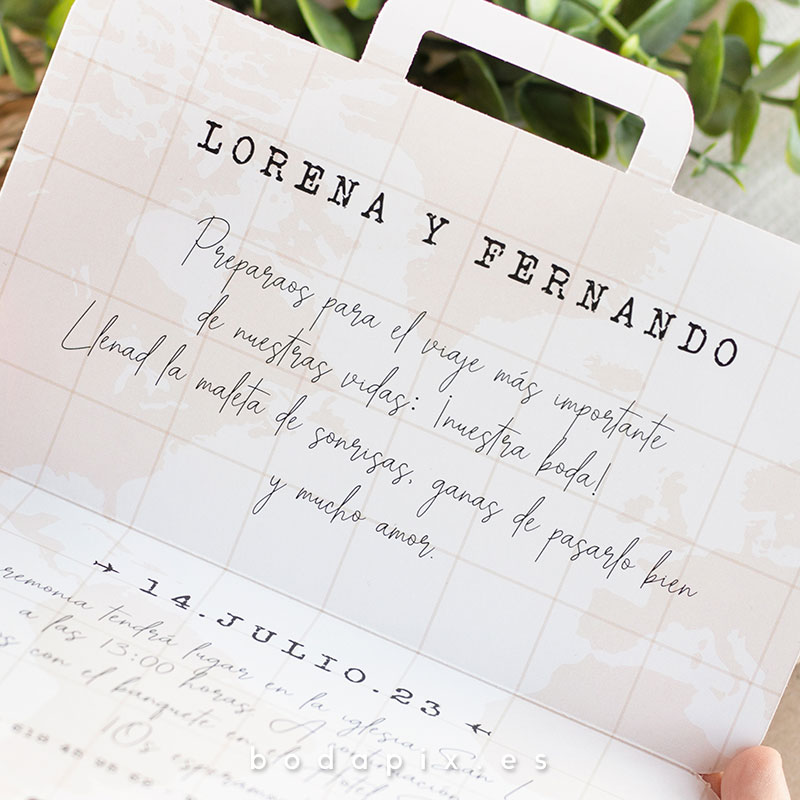 LORENA Y FERNANDO
Preparaos para el viaje más importante
de nuestras vidas: ¡nuestra boda!
Llenad la maleta de sonrisas, ganas de pasarlo bien
y mucho amor.
14.JULIO.23
tendrá lugar en la iglesia San
a las 13:00 horas. A continuación
con el banquete en el Hotel
¡Os esperamos
bodapix.es